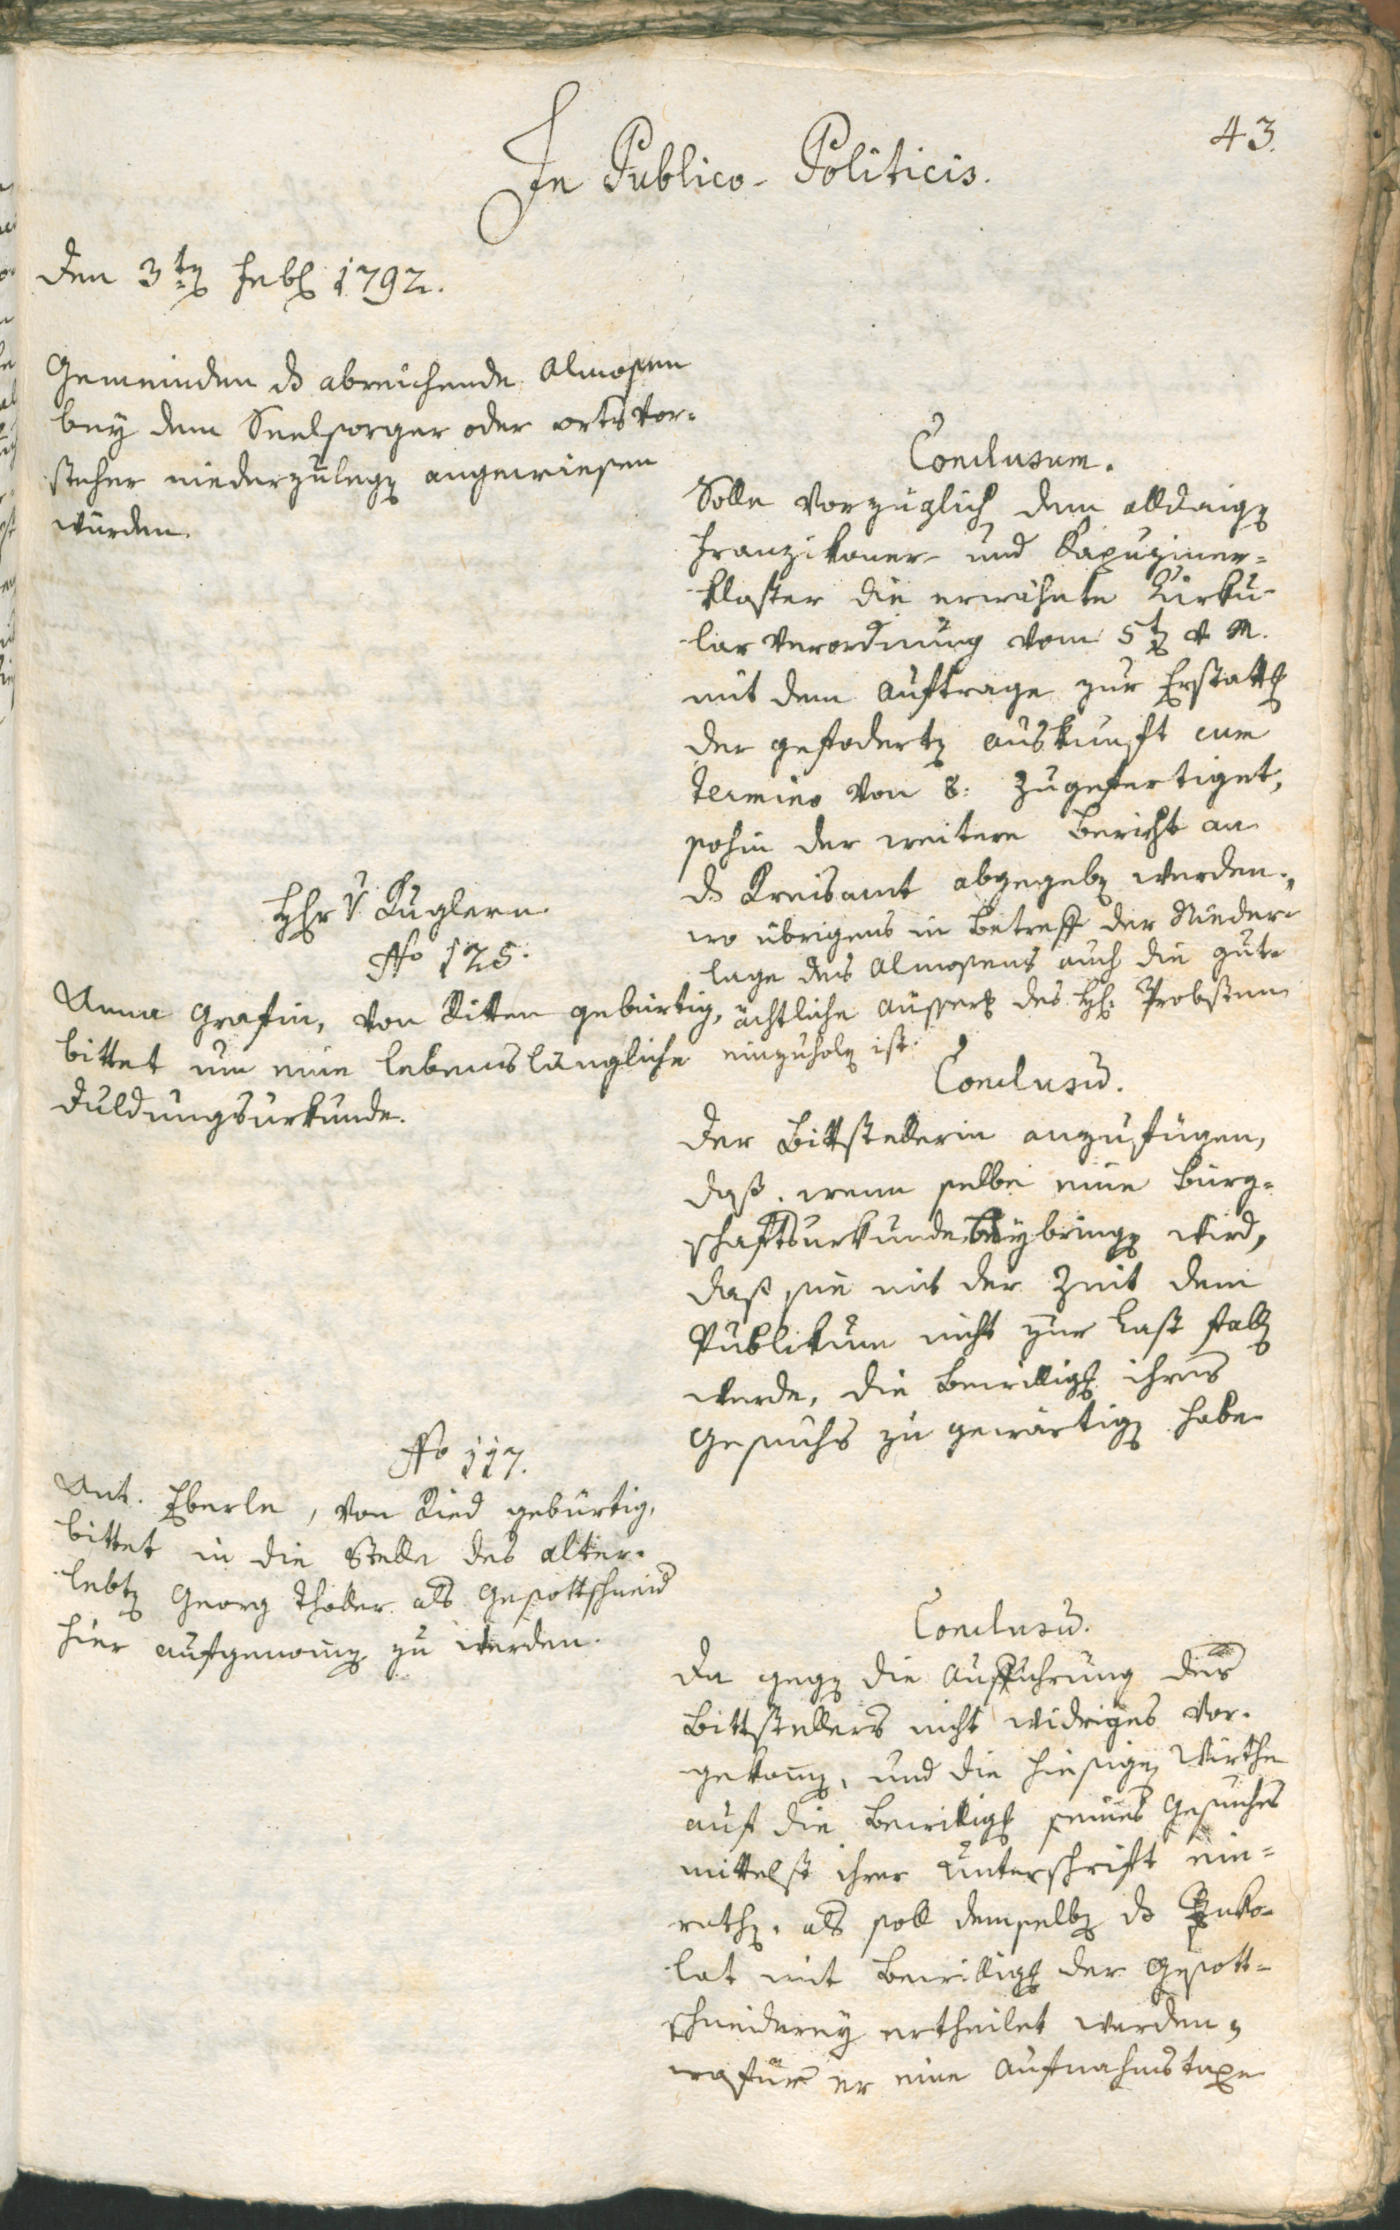 43.
In Publico-Politicis.
Den 3ten Febr 1792.
Gemeinden ds abreichende Almosen
bey dem Seelsorger oder ortsvor=
steher niederzulegen angewiesen
wurden.
Conclusum.
Solle vorzüglich dem alldaigen
Franzikaner- und Kapuziner=
kloster die erwähnte Zirku-
larverordnung vom 5ten v. M.
mit dem Auftrage zur Erstattung
der gefoderten Auskunft cum
Termino von 8: zugefertiget,
sohin der weitere Bericht an
ds Kreisamt abgegeben werden.,
wo übrigens in Betreff der Nieder=
lage des Almosens auch die gut=
ächtliche Äusserung des H: Probsten
einzuholen ist.
Hr v Kuglern
No 125.
Anna Grafin, von Ritten gebürtig,
bittet um eine lebenslängliche
Duldungsurkunde.
Conclusum.
Der Bittstellerin anzufügen,
daß, wenn selbe eine Bürg=
schaftsurkunde beybringen wird,
daß sie mit der Zeit dem
Publikum nicht zur Last fallen
werde, die Bewilligung ihres
Gesuchs zu gewärtigen habe.
No 117.
Ant. Eberle, von Ried gebürtig,
bittet in die Stelle des alter=
lebten Georg Thaller als Gesottschneid
hier aufgenommen zu werden.
Conclusum.
Da gegen die Aufführung des
Bittstellers nicht widriges vor=
gekommen, und die hiesigen Wirthe
auf die Bewilligung seines Gesuches
mittelst ihrer Unterschrift ein=
rathen, als soll demselben ds Inko=
lat mit Bewilligung der Gesott=
schneiderey ertheilet werden,
wofür er eine Aufnahmstaxe